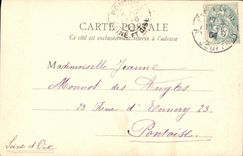 CARTE POSTALE
Ce côté est exclusivement réservé à l'adresse
Mademoiselle Jeanne
Monnot des Angles
23 Rue d'Ennery 23
Pontoise
Seine & Oise